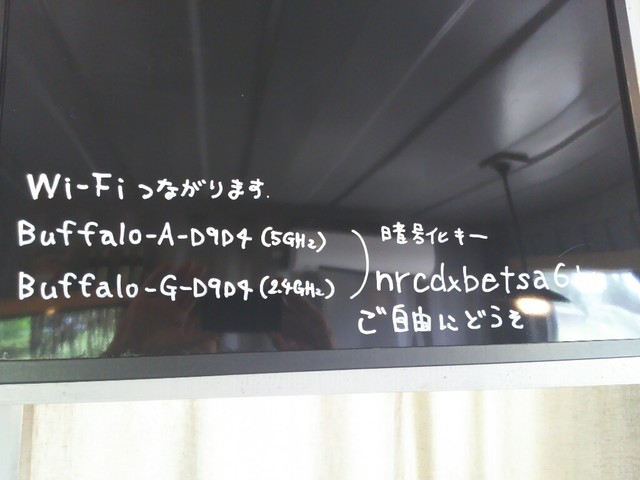 Wi-Fi つながります.
Buffalo-A-D9D4 (5GHz)
Buffalo-G-D9D4 (2.4GHz)
暗号化キー
ご自由にどうぞ